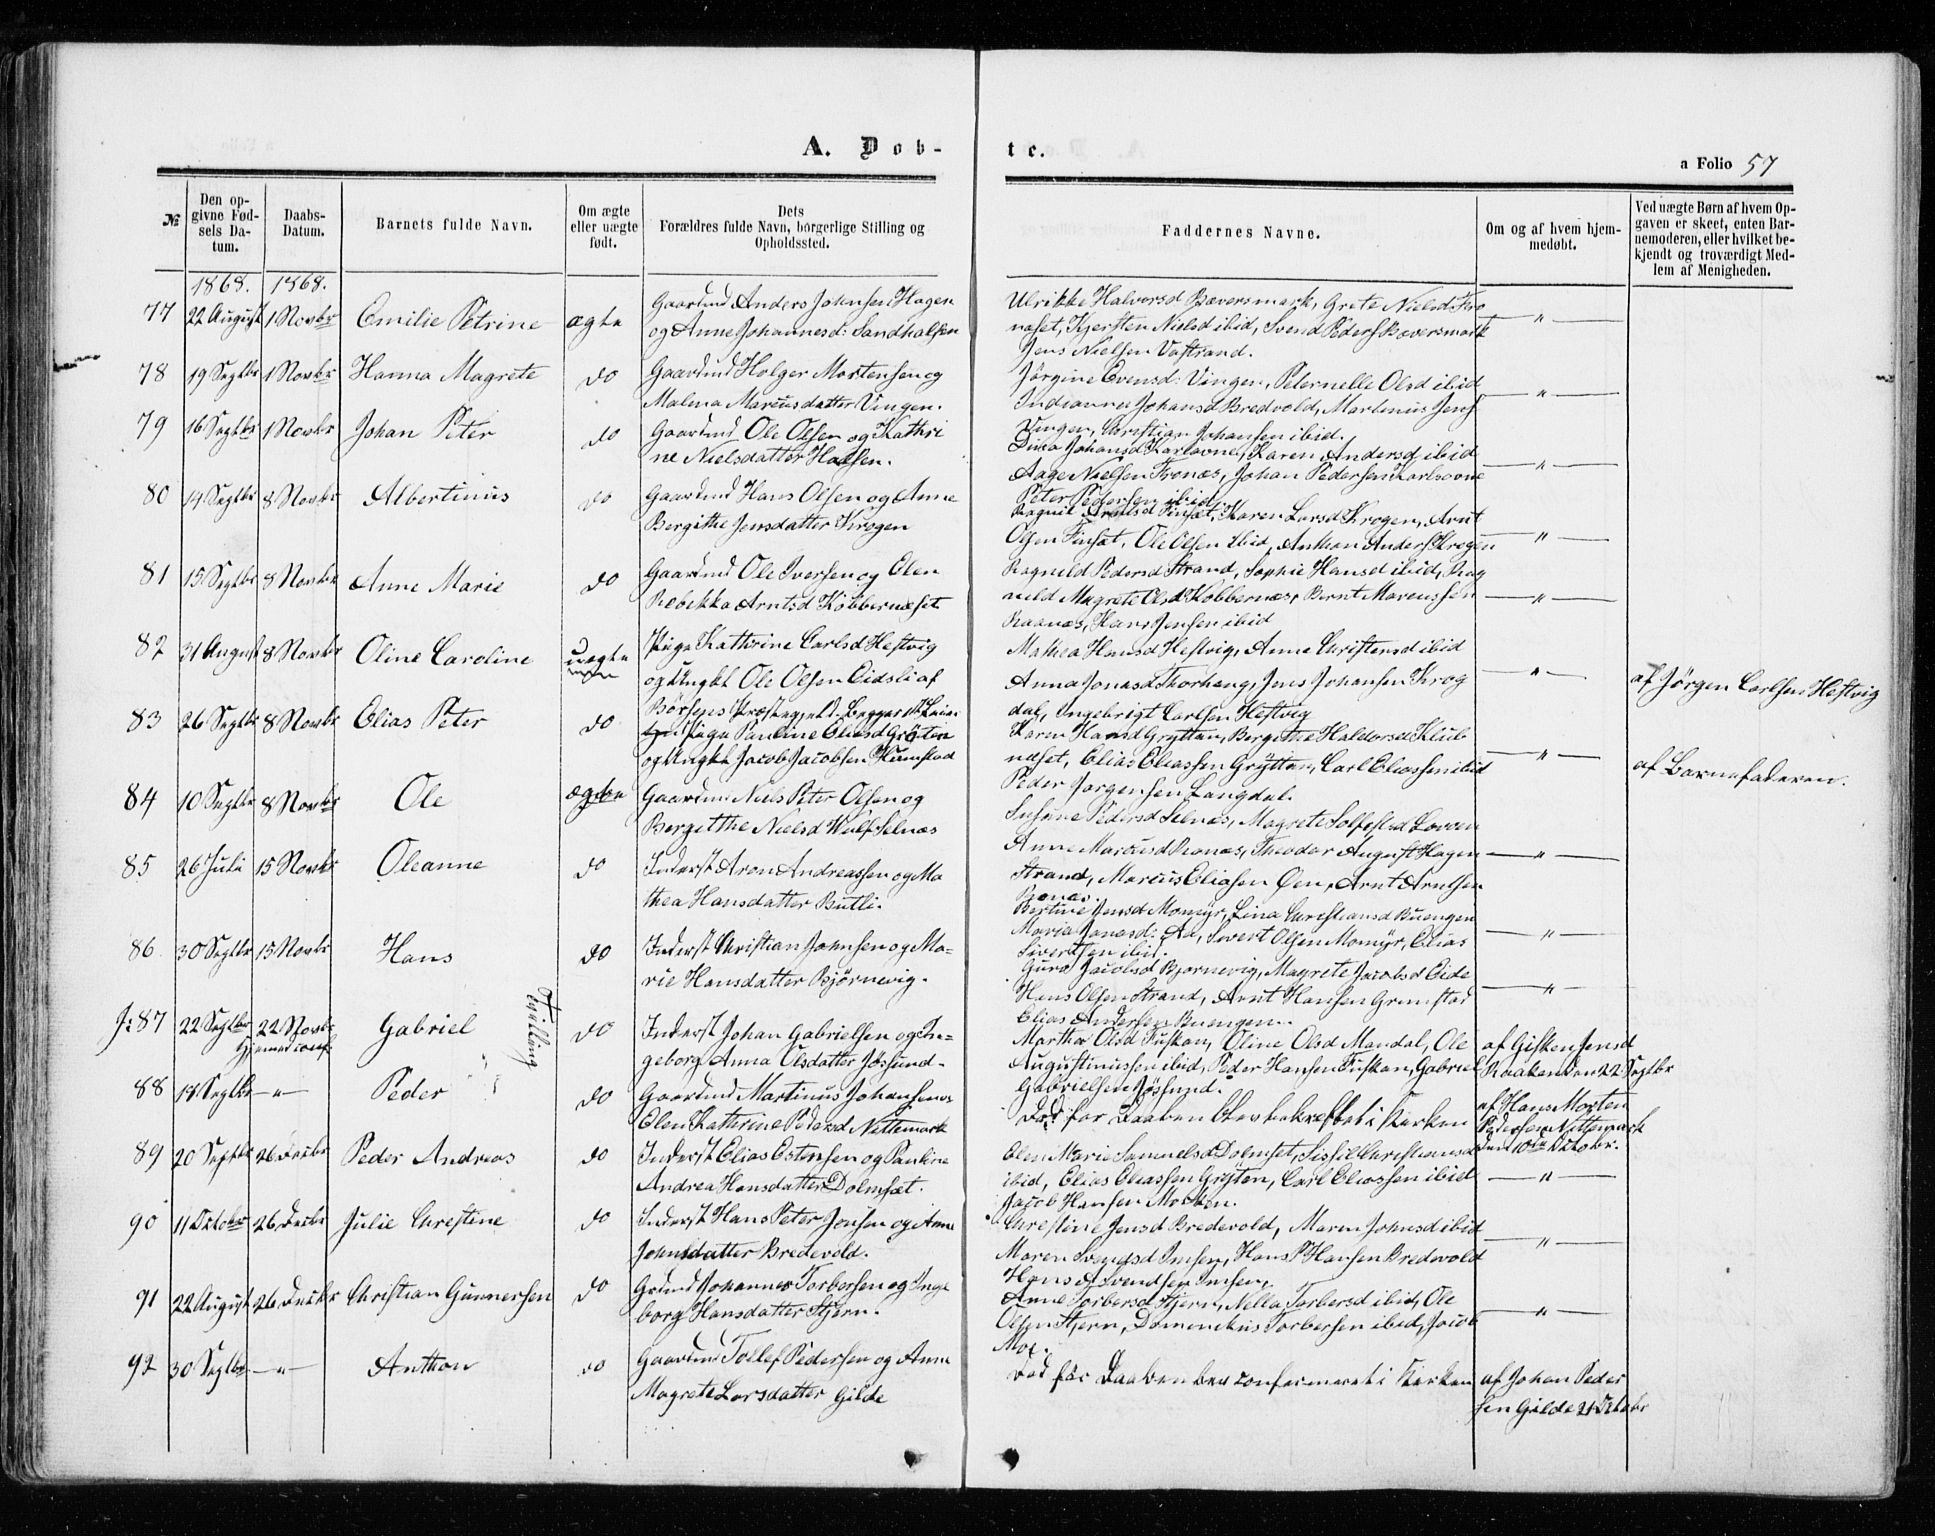 A. Dob-
te.
a Folio 57
№
Den op-
givne Fød-
sels Da-
tum.
Daabs-
Datum.
Barnets fulde Navn.
Om ægte
eller uægte
født.
Dets
Forældres fulde Navn, borgerlige Stilling og
Opholdssted.
Faddernes Navne.
Om og af hvem hjem-
medøbt.
Ved uægte Børn af hvem Op-
gaven er skeet, enten Bar-
nemoderen, eller hvilket be-
kjendt og troværdigt Med-
lem af Menigheden.
1868. 1868.
77 22 August 1 Novbr Emilie Petrine ægte
Gaardmd Anders Johnsen Hagen
og Anne Johannesd: Sandhalsen
Ulrikke Halvorsd Bæversmark, Grete Nielsd Fro
naset, Kjersten Nielsd ibid, Svend Peders Bæversmark
Jens Nielsen Vastrand.
— " —
78 19 Septbr 1 Novbr Hanna Magrete do
Gaardmd Holger Mortensen og
Malena Marcusdatter Vingen.
Jørgine Evensd: Vingen, Peternelle Olsd ibid
Indianna Johansd Bredvold, Martinus Jens
Vingen, Christian Johansen ibid.
— " —
79 16 Septbr 1 Novbr Johan Peter do
Gaardmd Ole Olsen og Kathri
ne Nielsdatter Halsen.
Dina Johansd Karlsovne, Karen Andersd ibid
Aage Nielsen Fronæs, Johan Pedersen Karlsovne
Peter Pedersen ibid
— " —
80 14 Septbr 8 Novbr Albertinus do
Gaardmd Hans Olsen og Anne
Bergithe Jensdatter Krogen
Ragnil Arntsd Finset, Karen Larsd Krogen, Arnt
Olsen Finsæt, Ole Olsen ibid, Anthon Anders Krogen
— " —
81 15 Septbr 8 Novbr Anne Marie do
Gaardmd Ole Iversen og Elen
Rebekka Arntsd Kobbernæset
Ragnild Pedersd Strand, Sophie Hansd ibid, Rag
nild Magrete Olsd Kobbernæs, Bernt Marcussen
Raanæs, Hans Jensen ibid
— " —
82 31 August 8 Novbr Oline Caroline uægte
Pige Kathrine Carlsd Hestvig
og Ungkl Ole Olsen Eidsli af
Børsens Præstegjeld. Begges 1ste Leier
maal
Mathea Hansd Hestvig, Anne Christensd ibid
Anna Jonasd Thorhaug, Jens Johansen Krog
dal, Ingebrigt Carlsen Hestvig
— " —
af Jørgen Carlsen Hestvig
83 26 Septbr 8 Novbr Elias Peter do
Pige Pauline Eliasd Grøten
og Ungkl Jacob Jacobsen Humstad
Karen Hansd Grytten, Bergithe Haldorsd Klub
næset, Elias Eliassen Grytten, Carl Eliassen ibid
Peder Jørgensen Langdal.
— " —
af Barnefaderen.
84 10 Septbr 8 Novbr Ole ægte
Gaardmd Niels Peter Olsen og
Bergitthe Nielsd Wulf Selnæs
Susane Pedersd Selnæs, Magrete
Anne Marcusd Ronæs, Theodor August Hagen
Strand, Marcus Eliasen Øen, Arnt Arntsen
Ronæs
— " —
85 26 Juli 15 Novbr Oleanne do
Inderst Aron Andreassen og Ma
thea Hansdatter Butli.
Bertine Jensd Momyr, Lina Christiansd Buengen
Maria Jonasd: Aa, Sivert Olsen Momyr, Elias
Sivertsen ibid.
— " —
86 30 Septbr 15 Novbr Hans do
Inderst Christian Johnsen og Ma-
rie Hansdatter Bjørnevig.
Guro Jacobsd Bjørnevig, Magrete Jacobsd Eide
Hans Olsen Strand, Arnt Hansen Grimstad
Elias Andersen Buengen.
— " —
87 22 Septbr 22 Novbr Gabriel Tvilling do
Hjemmed conf.
Inderst Johan Gabrielsen og In=
geborg Anna Olsdatter Jøssund.
Martha Olsd Fuskan, Oline Olsd Mandal, Ole
Augustinussen ibid, Peder Hansen Fuskan, Gabriel
Gabrielsen Jøssund.
af Gisken Jensd
Raaken den 22 Septbr
88 14 Septbr — " — Peder do
Gaardmd Martinus Johansen og
Elen Kathrine Pedersd Nettemark
Død før Daaben blev bekræftet i Kirken
af Hans Morten
Pedersen Nettemark
den 10de Oktober.
89 20 Septbr 26 Decbr Peder Andreas do
Inderst Elias Estensen og Pauline
Andrea Hansdatter Dolmsæt.
Elen Marie Samuelsd Dolmset, Sissil Christiansd
ibid, Elias Eliassen Grøten, Carl Eliassen ibid
Jacob Hansen Morken.
— " —
90 11 October 26 Decbr Julie Christine do
Inderst Hans Peter Jonsen og Anne
Johnsdatter Bredevold.
Christine Jensd Bredevold, Maren Johnsd ibid
Maren Svendsd Imsen, Hans P Hansen Bredvold
Hans A Svendsen Imsen,
— " —
91 22 August 26 Decbr Christian Gunnersen do
Grdmd Johannes Torbersen og Inge
borg Hansdatter Stjern.
Anne Torbersd Stjern, Nella Torbersd ibid, Ole
Olsen Stjern, Domenikus Torbersen ibid, Jacob
Moe.
— " —
92 30 Septbr — " — Anthon do
Gaardmd Tollef Pedersen og Anne
Magrete Larsdatter Gilde
Død før Daaben blev confirmeret i Kirken
af Johan Peder
sen Gilde 21 Octobr